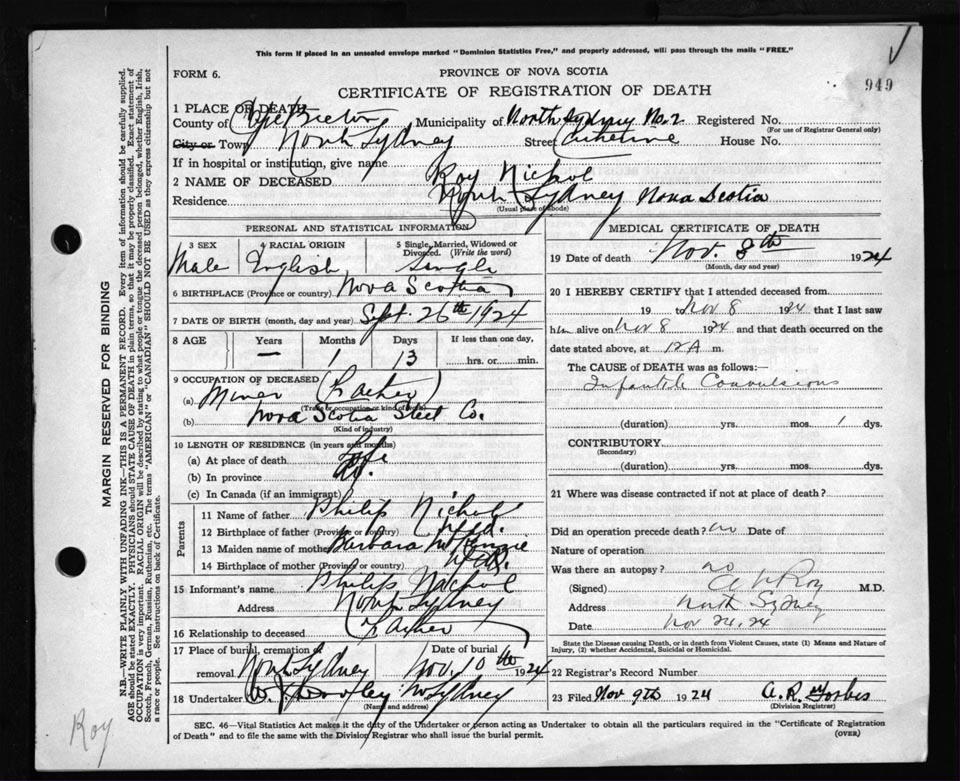 This form if placed in an unsealed envelope marked "Dominion Statistics Free," and properly addressed, will pass through the mails "FREE."
FORM 6.
PROVINCE OF NOVA SCOTIA
CERTIFICATE OF REGISTRATION OF DEATH
949
1 PLACE OF DEATH
County of Cape Breton Municipality of North Sydney No. 2 Registered No.
(For use of Registrar General only)
City or Town North Sydney Street House No.
If in hospital or institution, give name
2 NAME OF DECEASED Roy Nichol
Residence North Sydney Nova Scotia
(Usual place of abode)
PERSONAL AND STATISTICAL INFORMATION
3 SEX 4 RACIAL ORIGIN 5 Single, Married, Widowed or Divorced. (Write the word)
Male English Single
6 BIRTHPLACE (Province or country) Nova Scotia
7 DATE OF BIRTH (month, day and year) Sept. 26th 1924
8 AGE Years Months Days If less than one day,
— 1 13 hrs. or min.
9 OCCUPATION OF DECEASED
(a) Miner (Father)
(Trade or occupation or kind of work)
(b) Nova Scotia Steel Co.
(Kind of industry)
10 LENGTH OF RESIDENCE (in years and months)
(a) At place of death Life
(b) In province do.
(c) In Canada (if an immigrant)
Parents
11 Name of father Philip Nichol
12 Birthplace of father (Province or country) Nfld.
13 Maiden name of mother Barbara McKenzie
14 Birthplace of mother (Province or country)
15 Informant's name Philip Nichol
Address North Sydney
16 Relationship to deceased Father
17 Place of burial, cremation or removal Date of burial
North Sydney Nov. 10th 1924
18 Undertaker N Sydney
(Name and address)
MEDICAL CERTIFICATE OF DEATH
19 Date of death Nov. 8th 1924
(Month, day and year)
20 I HEREBY CERTIFY that I attended deceased from
19 to Nov 8 1924 that I last saw
him alive on Nov 8 1924 and that death occurred on the
date stated above, at 12 A m.
The CAUSE of DEATH was as follows:—
Infantile Convulsions
(duration) yrs. mos. 1 dys.
CONTRIBUTORY
(Secondary)
(duration) yrs. mos. dys.
21 Where was disease contracted if not at place of death?
Did an operation precede death? no Date of
Nature of operation
Was there an autopsy? no
(Signed) M.D.
Address North Sydney
Date Nov 24, 24
State the Disease causing Death, or in death from Violent Causes, state (1) Means and Nature of Injury, (2) whether Accidental, Suicidal or Homicidal.
22 Registrar's Record Number
23 Filed Nov 9th 1924 A. R. Forbes
(Division Registrar)
SEC. 46—Vital Statistics Act makes it the duty of the Undertaker or person acting as Undertaker to obtain all the particulars required in the "Certificate of Registration
of Death" and to file the same with the Division Registrar who shall issue the burial permit.
(OVER)
MARGIN RESERVED FOR BINDING
N.B.—WRITE PLAINLY WITH UNFADING INK—THIS IS A PERMANENT RECORD. Every item of information should be carefully supplied.
AGE should be stated EXACTLY. PHYSICIANS should STATE CAUSE OF DEATH in plain terms, so that it may be properly classified. Exact statement of
OCCUPATION is very important. RACIAL ORIGIN will be described by stating to what people or tongue the deceased person belonged, whether English, Irish,
Scotch, French, German, Russian, Ruthenian, etc. The terms "AMERICAN" or "CANADIAN" SHOULD NOT BE USED as they express citizenship but not
a race or people. See instructions on back of Certificate.
Roy